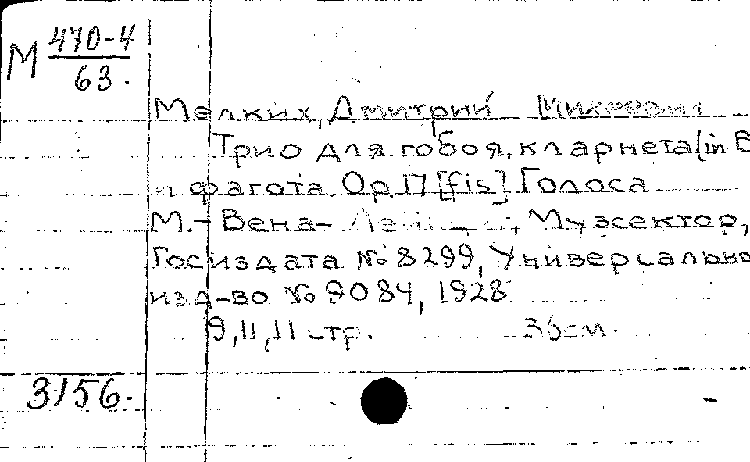 М 470-4
63.
Мелких, Дмитрий
Трио для гобоя, кларнета (in B
и фагота Op 17 [fis] Голоса
М.- Вена- Музсектор,
Госиздата № 8299, Универсально
изд-во № 9084, 1928
9, 11, 11 стр. 36см.
3156.